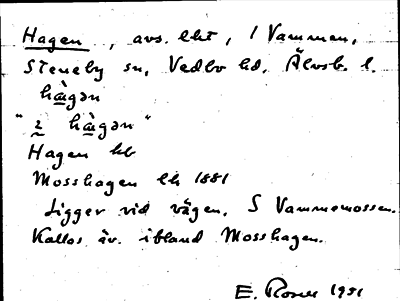 Hagen, avs. lht, I Vammen,
Steneby sn, Vedbo hd, Älvsb. l.
hàgən
"i hàgən"
Hagen hb
Mosshagen lh 1881
Ligger vid vägen, S Vammemossen.
Kallas äv. ibland Mosshagen.
E. Rosell 1951